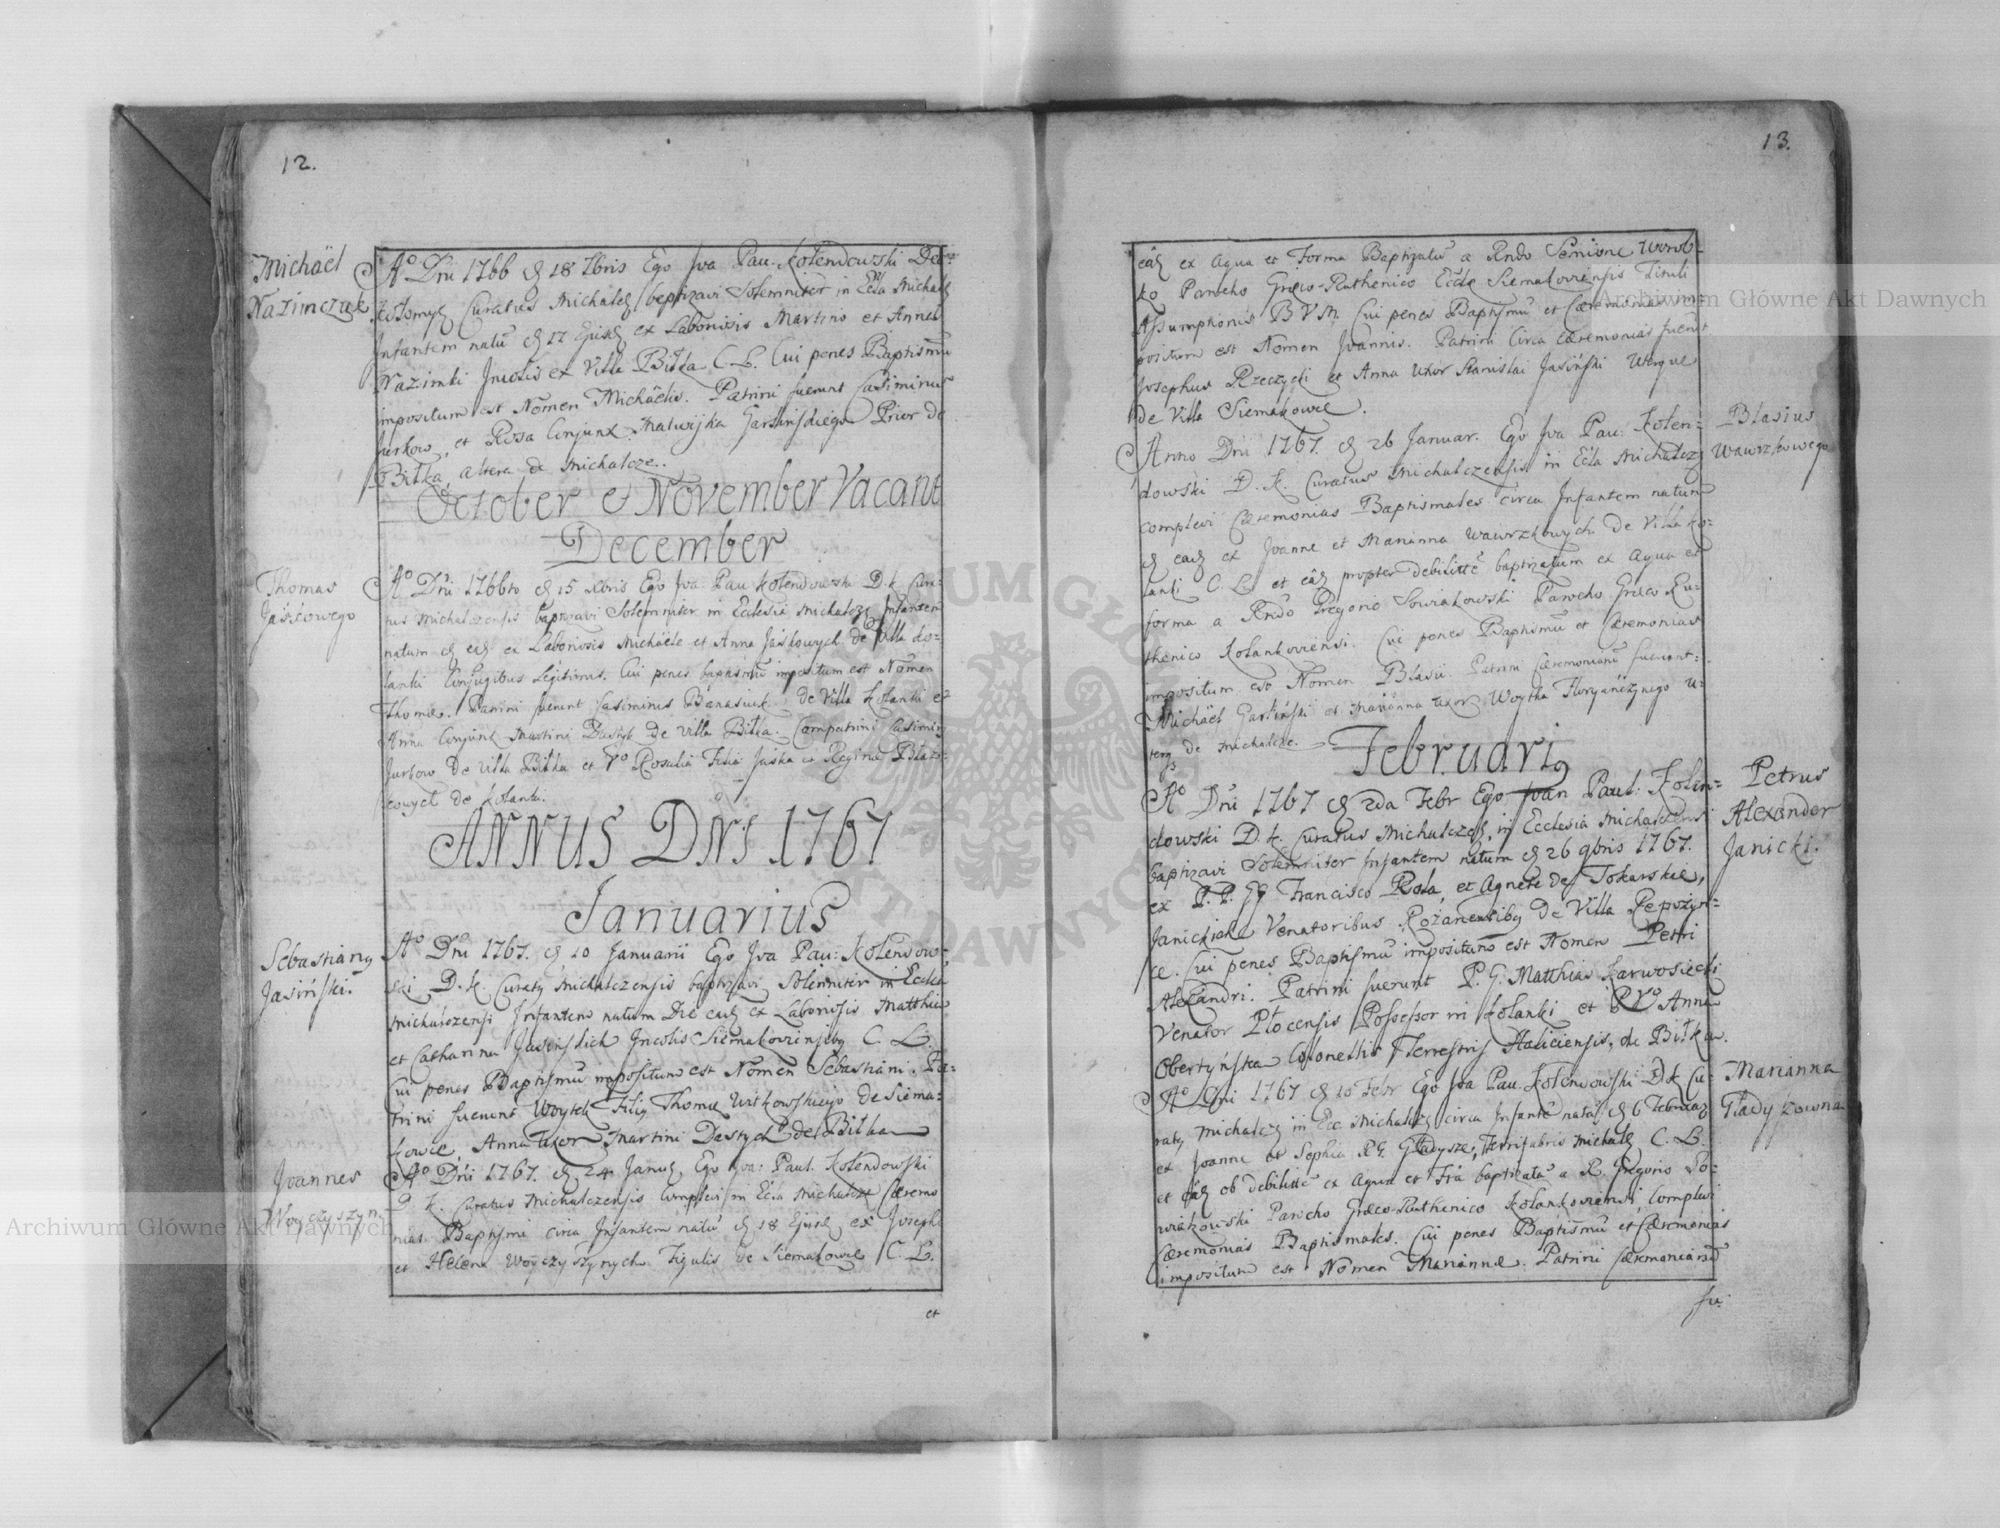 12.
Michaël
Nazimczuk
A° Dni 1766 d 18 7bris Ego Jva Pau. Kolendowski Dec:
Curatus Michalcz baptizavi Solemniter in Ecla Michalcz
Infantem natu d 17 Ejusd ex Laboriosis Martino et Anna
Nazimki Incolis ex Villa Bitka C. L. Cui penes Baptismu
impositum est Nomen Michäelis. Patrini fuerunt Casimirus
Jurkow, et Rosa Conjunx Prior de
Bitka, altera de Michalcze.
October et November Vacant
December
Thomas
Jaśkowego
A° Dni 1766to d 15 Xbris Ego Jva Pau Kolendowski D. K. Cura:
tus Michalczensis baptizavi Solemniter in Ecclesia Michalcz Infantem
natum d ead ex Laboriosis Michäele et Anna Jaśkowych de Villa Ko:
lanki Conjugibus Legitimis. Cui penes baptismu impositum est Nomen
Thomæ. Patrini fuerunt Casimirus Banasiuk de Villa Kolanki et
Anna Conjunx Martini Dastych de Villa Bitka. Compatrini Casimir
Jurkow de Villa Bitka et V° Rosalia Filia Jaśka et Reginæ Błaże:
cowych de Kolanki.
ANNUS DNI 1767
Januarius
Sebastiany
Jasiński.
A° Dni 1767. d 10 Januarii Ego Jva Pau: Kolendow:
ski D. K. Curaty Michalczensis baptizavi Solemniter in Eccla
Michalczensi Infantem natum Die ead ex Laboriosis Matthia
et Catharina Jasinskich Incolis Siemakoviensiby C. L.
Cui penes Baptismu impositum est Nomen Sebastiani. Pa:
trini fuerunt Woytek Filiy Thomæ Witkowskiego de Siema:
kowce, Anna Uxor Martini Dastych de Bitka
Joannes
Woyczyszyn.
A° Dni 1767. d 24 Janu Ego Jva: Paul. Kolendowski
D. K. Curatus Michalczensis Complevi in Ecla Michalcze Cæremo
nias Baptismi circa Infantem natu d 18 Ejusd ex Josepho
et Helena Woyczyszynych Figulis de Siemakowce C. L.
et
13.
ead ex Aqua et Forma Baptizatu a Rndo Simione Worob:
ko Parocho Græco-Ruthenico Eccle Siemakoviensis Tituli
Assumptionis B V M. Cui penes Baptismu et Cæremonias im:
positum est Nomen Joannis. Patrini Circa Cæremonias fuerut
Josephus Rzeczycki et Anna Uxor Stanislai Jasiński Uterque
de Villa Siemakowce.
Blasius
Wawrzkowego
Anno Dni 1767. d 26 Januar. Ego Jva Pau: Kolen:
dowski D. K. Curatus Michalczensis in Ecla Michalcz
complevi Cæremonias Baptismales circa Infantem natum
d ead ex Joanne et Marianna Wawrzkowych de Villa Ko:
lanki C. L. et ead propter debilitate baptizatum ex Aqua et
forma a Rndo Gregorio Sowiakowski Parocho Græco Ru:
thenico Kolankoviensi. Cui penes Baptismu et Cæremonias
impositum est Nomen Blasii. Patrini Cæremoniaru fuerunt:
Michäel Garliński et Marianna uxor Woytka Floryańczynego U:
terq de Michalcze.
Februariy
Petrus
Alexander
Janicki.
A° Dni 1767 d 2da Febr Ego Joan Paul: Kolen:
dowski D. K. Curatus Michalcz, in Ecclesia Michalczensi
baptizavi Solemniter Infantem natum d 26 9bris 1767.
ex P. P. GG Francisco Rola, et Agnete de Tokarskie,
Janickie Venatoribus Rożanensiby de Villa Repużyn:
ce. Cui penes Baptismu impositum est Nomen Petri
Alexandri. Patrini fuerunt P. G. Matthias Karwosiecki
Venator Płocensis Possessor in Kolanki et V° Anna
Obertyńska Colonellis Terrestris Haliciensis, de Bitka.
Marianna
Gładyszowna
A° Dni 1767 d 10 Febr Ego Jva Pau. Kolendowski D K Cu:
raty Michalcz in Ecc. Michalcz circa Infante nata d 6 Februar
ex Joanne et Sophia PG. Gładysze, Ferrifabris Michalcz C. L.
et ead ob debilitate ex Aqua et Fra baptizata a R. Gregorio So:
wiakowski Parocho Græco-Ruthenico Kolankoviensi, Complevi
Cæremonias Baptismales. Cui penes Baptismu et Cæremonias
impositum est Nomen Mariannæ. Patrini Cæremoniaru
fu:
Archiwum Główne Akt Dawnych
Archiwum Główne Akt Dawnych
ARCHIWUM GŁÓWNE AKT DAWNYCH